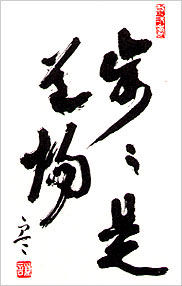 歩々是
道場